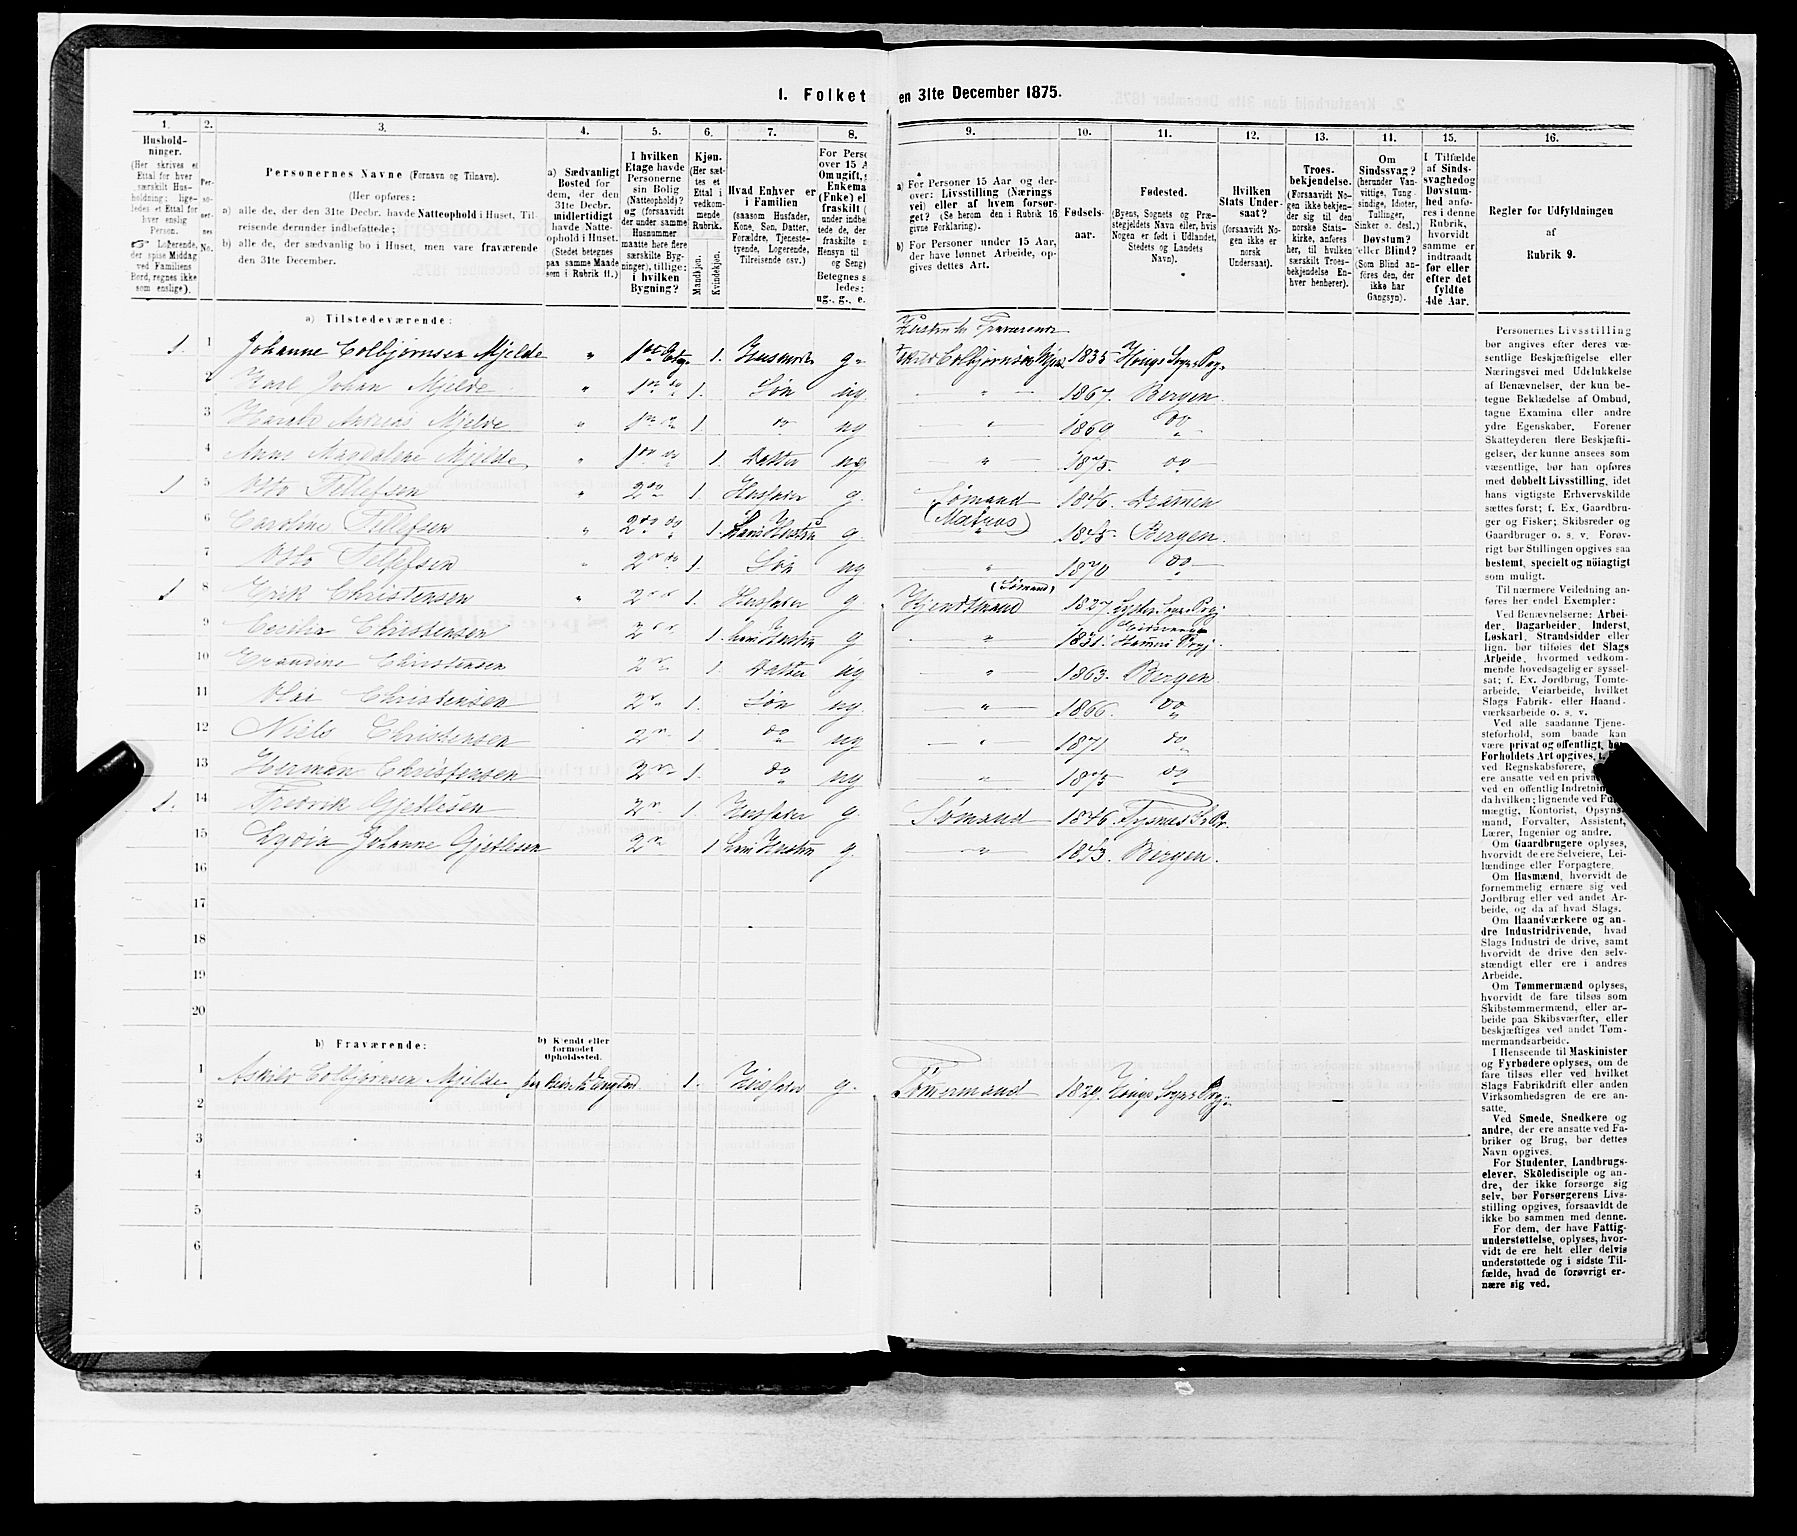 1. Folket
en 31te December 1875.
1. 2. 3. 4. 5. 6. 7. 8. 9. 10. 11. 12. 13. 14. 15. 16.
Hushold-
ninger.
(Her skrives et
Ettal for hver
særskilt Hus-
holdning; lige-
ledes et Ettal for
hver enslig
Person.
Logerende,
der spise Middag
ved Familiens
Bord, regnes ikke
som enslige).
Per-
so-
ner-
nes
No.
Personernes Navne (Fornavn og Tilnavn).
(Her opføres:
a) alle de, der den 31te Decbr. havde Natteophold i Huset, Til-
reisende derunder indbefattede;
b) alle de, der sædvanlig bo i Huset, men vare fraværende
den 31te December.
a) Sædvanligt
Bosted for
dem, der den
31te Decbr.
midlertidigt
havde Natte-
ophold i Huset.
(Stedet betegnes
paa samme Maade
som i Rubrik 11.)
I hvilken
Etage havde
Personerne
sin Bolig
(Natteophold)?
og (forsaavidt
der under samme
Husnummer
maatte høre flere
særskilte Byg-
ninger), tillige:
i hvilken
Bygning?
Kjøn.
(Her sæt-
tes et
Ettal i
vedkom-
mende
Rubrik.
Mandkjøn.
Kvindekjøn.
Hvad Enhver er
i Familien
(saasom Husfader,
Kone, Søn, Datter,
Forældre, Tjeneste-
tyende, Logerende,
Tilreisende osv.)
For Perso
over 15 A
Om ugift,
Enkema
(Enke) el
fraskilt (
under indbe
tede de, der
fraskilte
Hensyn til
og Seng)
Betegnes s
ledes:
ug., g., e.
a) For Personer 15 Aar og der-
over: Livsstilling (Nærings
vei) eller af hvem forsør-
get? (Se herom den i Rubrik 16
givne Forklaring).
b) For Personer under 15 Aar,
der have lønnet Arbeide, op-
gives dettes Art.
Fødsels-
aar.
Fødested.
(Byens, Sognets og Præ-
stegjeldets Navn eller, hvis
Nogen er født i Udlandet,
Stedets og Landets
Navn).
Hvilken
Stats Under-
saat?
(forsaavidt No-
gen ikke er
norsk
Undersaat).
Troes-
bekjendelse.
(Forsaavidt No-
gen ikke bekjen-
der sig til den
norske Stats-
kirke, anføres
her, til hvilken
særskilt Troes-
bekjendelse En-
hver henhører).
Om
Sindssvag?
(herunder Van-
vittige, Tung-
sindige, Idioter,
Tullinger,
Sinker o. desl.)
Døvstum?
eller Blind?
(Som Blind an-
føres den, der
ikke har
Gangsyn).
I Tilfælde
af Sinds-
svaghed og
Døvstum-
hed anfø-
res i denne
Rubrik,
hvorvidt
samme er
indtraadt
før eller
efter det
fyldte
4de Aar.
Regler for Udfyldningen
af
Rubrik 9.
a) Tilstedeværende:
1 1 Johanne Colbjørnsen Mjelde " 1ste Etg 1. Husmoder g. 1835 Sogn Prg.
2 Karl Johan Mjelde " 1. Søn ug. " 1867. Bergen
3 Harald Andreas Mjelde " 1. do ug " 1869. do
4 Anne Magdalene Mjelde " 1. Datter ug " 1875. do
1 5 Otto Tellefsen " 2 do 1. Husfader g. Sømand 1846. Drammen
6 Caroline Tellefsen " 2 do do 1. hans Hustru g. (Matros) 1845. Bergen
7 Otto Tellefsen 2 1. Søn ug " 1870 do
1 8 Erik Christensen " 2 1. Husfader g. (Sømand) 1827.
9 Cecilia Christensen 2 1. hans Hustru g " 1831. Prgj.
10 Christensen 2 1. Datter ug " 1863. Bergen
11 Christensen 2 1. Søn ug " 1866. do
12 Niels Christensen 2 1 do ug " 1871 do
13 Herman Christensen 2 1. do ug " 1875 do
1. 14 Fredrik Gjetlesen 2 1. Husfader g. Sømand 1846. Tysnes
15 Lydia Johanne Gjetlesen 2 1 hans Hustru g. " 1843. Bergen.
16
17
18
19
20
b) Fraværende:
b) Kjendt eller
formodet
Opholdssted.
1 Askild Colbjørnsen Mjelde England 1. Husfader g. Tømermand 1829. Sogn Prgj.
2
3
4
5
6
Personernes Livsstilling
bør angives efter deres væ-
sentlige Beskjæftigelse eller
Næringsvei med Udelukkelse
af Benævnelser, der kun be-
tegne Beklædelse af Ombud,
tagne Examina eller andre
ydre Egenskaber. Forener
Skatteyderen flere Beskjæfti-
gelser, der kunne ansees som
væsentlige, bør han opføres
med dobbelt Livsstilling, idet
hans vigtigste Erhvervskilde
sættes først; f. Ex. Gaardbru-
ger og Fisker; Skibsreder og
Gaardbruger o. s. v. Forøv-
rigt bør Stillingen opgives saa
bestemt, specielt og nøiagtigt
som muligt.
Til nærmere Veiledning an-
føres her endel Exempler:
Ved Benævnelserne: Arbei-
der, Dagarbeider, Inderst,
Løskarl, Strandsidder eller
lign. bør tilføies det Slags
Arbeide, hvormed vedkom-
mende hovedsagelig er syssel-
sat; f. Ex. Jordbrug, Tomte-
arbeide, Veiarbeide, hvilket
Slags Fabrik- eller Haand-
værksarbeide o. s. v.
Ved alle saadanne Tjene-
steforhold, som baade kan
være privat og offentligt, bør
Forholdets Art opgives,
ved Regnskabsførere,
ere ansatte ved en priva
ved en offentlig Indretning
da hvilken; lignende ved Fuld-
mægtig, Kontorist, Opsyns-
mand, Forvalter, Assistent,
Lærer, Ingeniør og andre.
Om Gaardbrugere oplyses,
hvorvidt de ere Selveiere, Lei-
lændinge eller Forpagtere.
Om Husmænd, hvorvidt de
fornemmelig ernære sig ved
Jordbrug eller ved andet Ar-
beide, og da af hvad Slags.
Om Haandværkere og an-
dre Industridrivende, hvad
Slags Industri de drive, samt
hvorvidt de drive den selv-
stændigt eller ere i andres
Arbeide.
Om Tømmermænd oplyses,
hvorvidt de fare tilsøs som
Skibstømmermænd, eller ar-
beide paa Skibsværfter, eller
beskjæftiges ved andet Tøm-
mermandsarbeide.
I Henseende til Maskinister
og Fyrbødere oplyses, om de
fare tilsøs eller ved hvilket
Slags Fabrikdrift eller anden
Virksomhedsgren de ere an-
satte.
Ved Smede, Snedkere og
andre, der ere ansatte ved Fa-
briker og Brug, bør dettes
Navn opgives.
For Studenter, Landbrugs-
elever, Skoledisciple og an-
dre, der ikke forsørge sig
selv, bør Forsørgerens Livs-
stilling opgives, forsaavidt de
ikke bo sammen med denne.
For dem, der have Fattig-
understøttelse, oplyses, hvor-
vidt de ere helt eller delvis
understøttede og i sidste Til-
fælde, hvad de forøvrigt er-
nære sig ved.